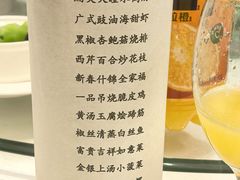 广式豉油海甜虾
黑椒杏鲍菇烧排
西芹百合炒花枝
新春什锦全家福
一品吊烧脆皮鸡
黄汤玉腐烩蹄筋
椒丝清蒸白丝鱼
富贵吉祥如意菜
金银上汤小菠菜